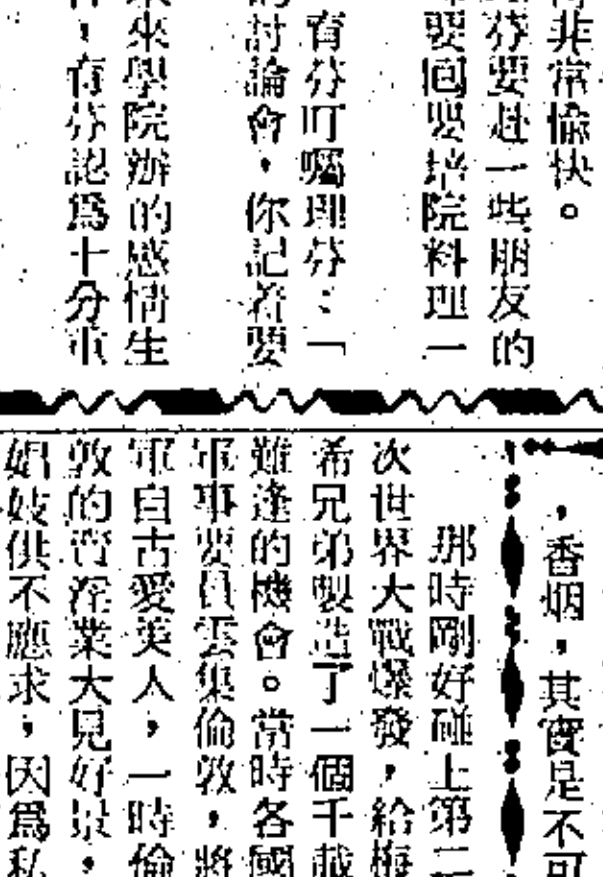 非常愉快。
芬要赴一些朋友的
要回嬰培院料理一
育芬叮囑理芬：「
討論會，你記着要
來學院辦的感情生
，育芬認爲十分重
，香烟，其實是不可
那時剛好碰上第二
次世界大戰爆發，給梅
希兄弟製造了一個千載
難逢的機會。當時各國
軍事要員雲集倫敦，將
軍自古愛美人，一時倫
敦的賣淫業大見好景，
娼妓供不應求，因爲私